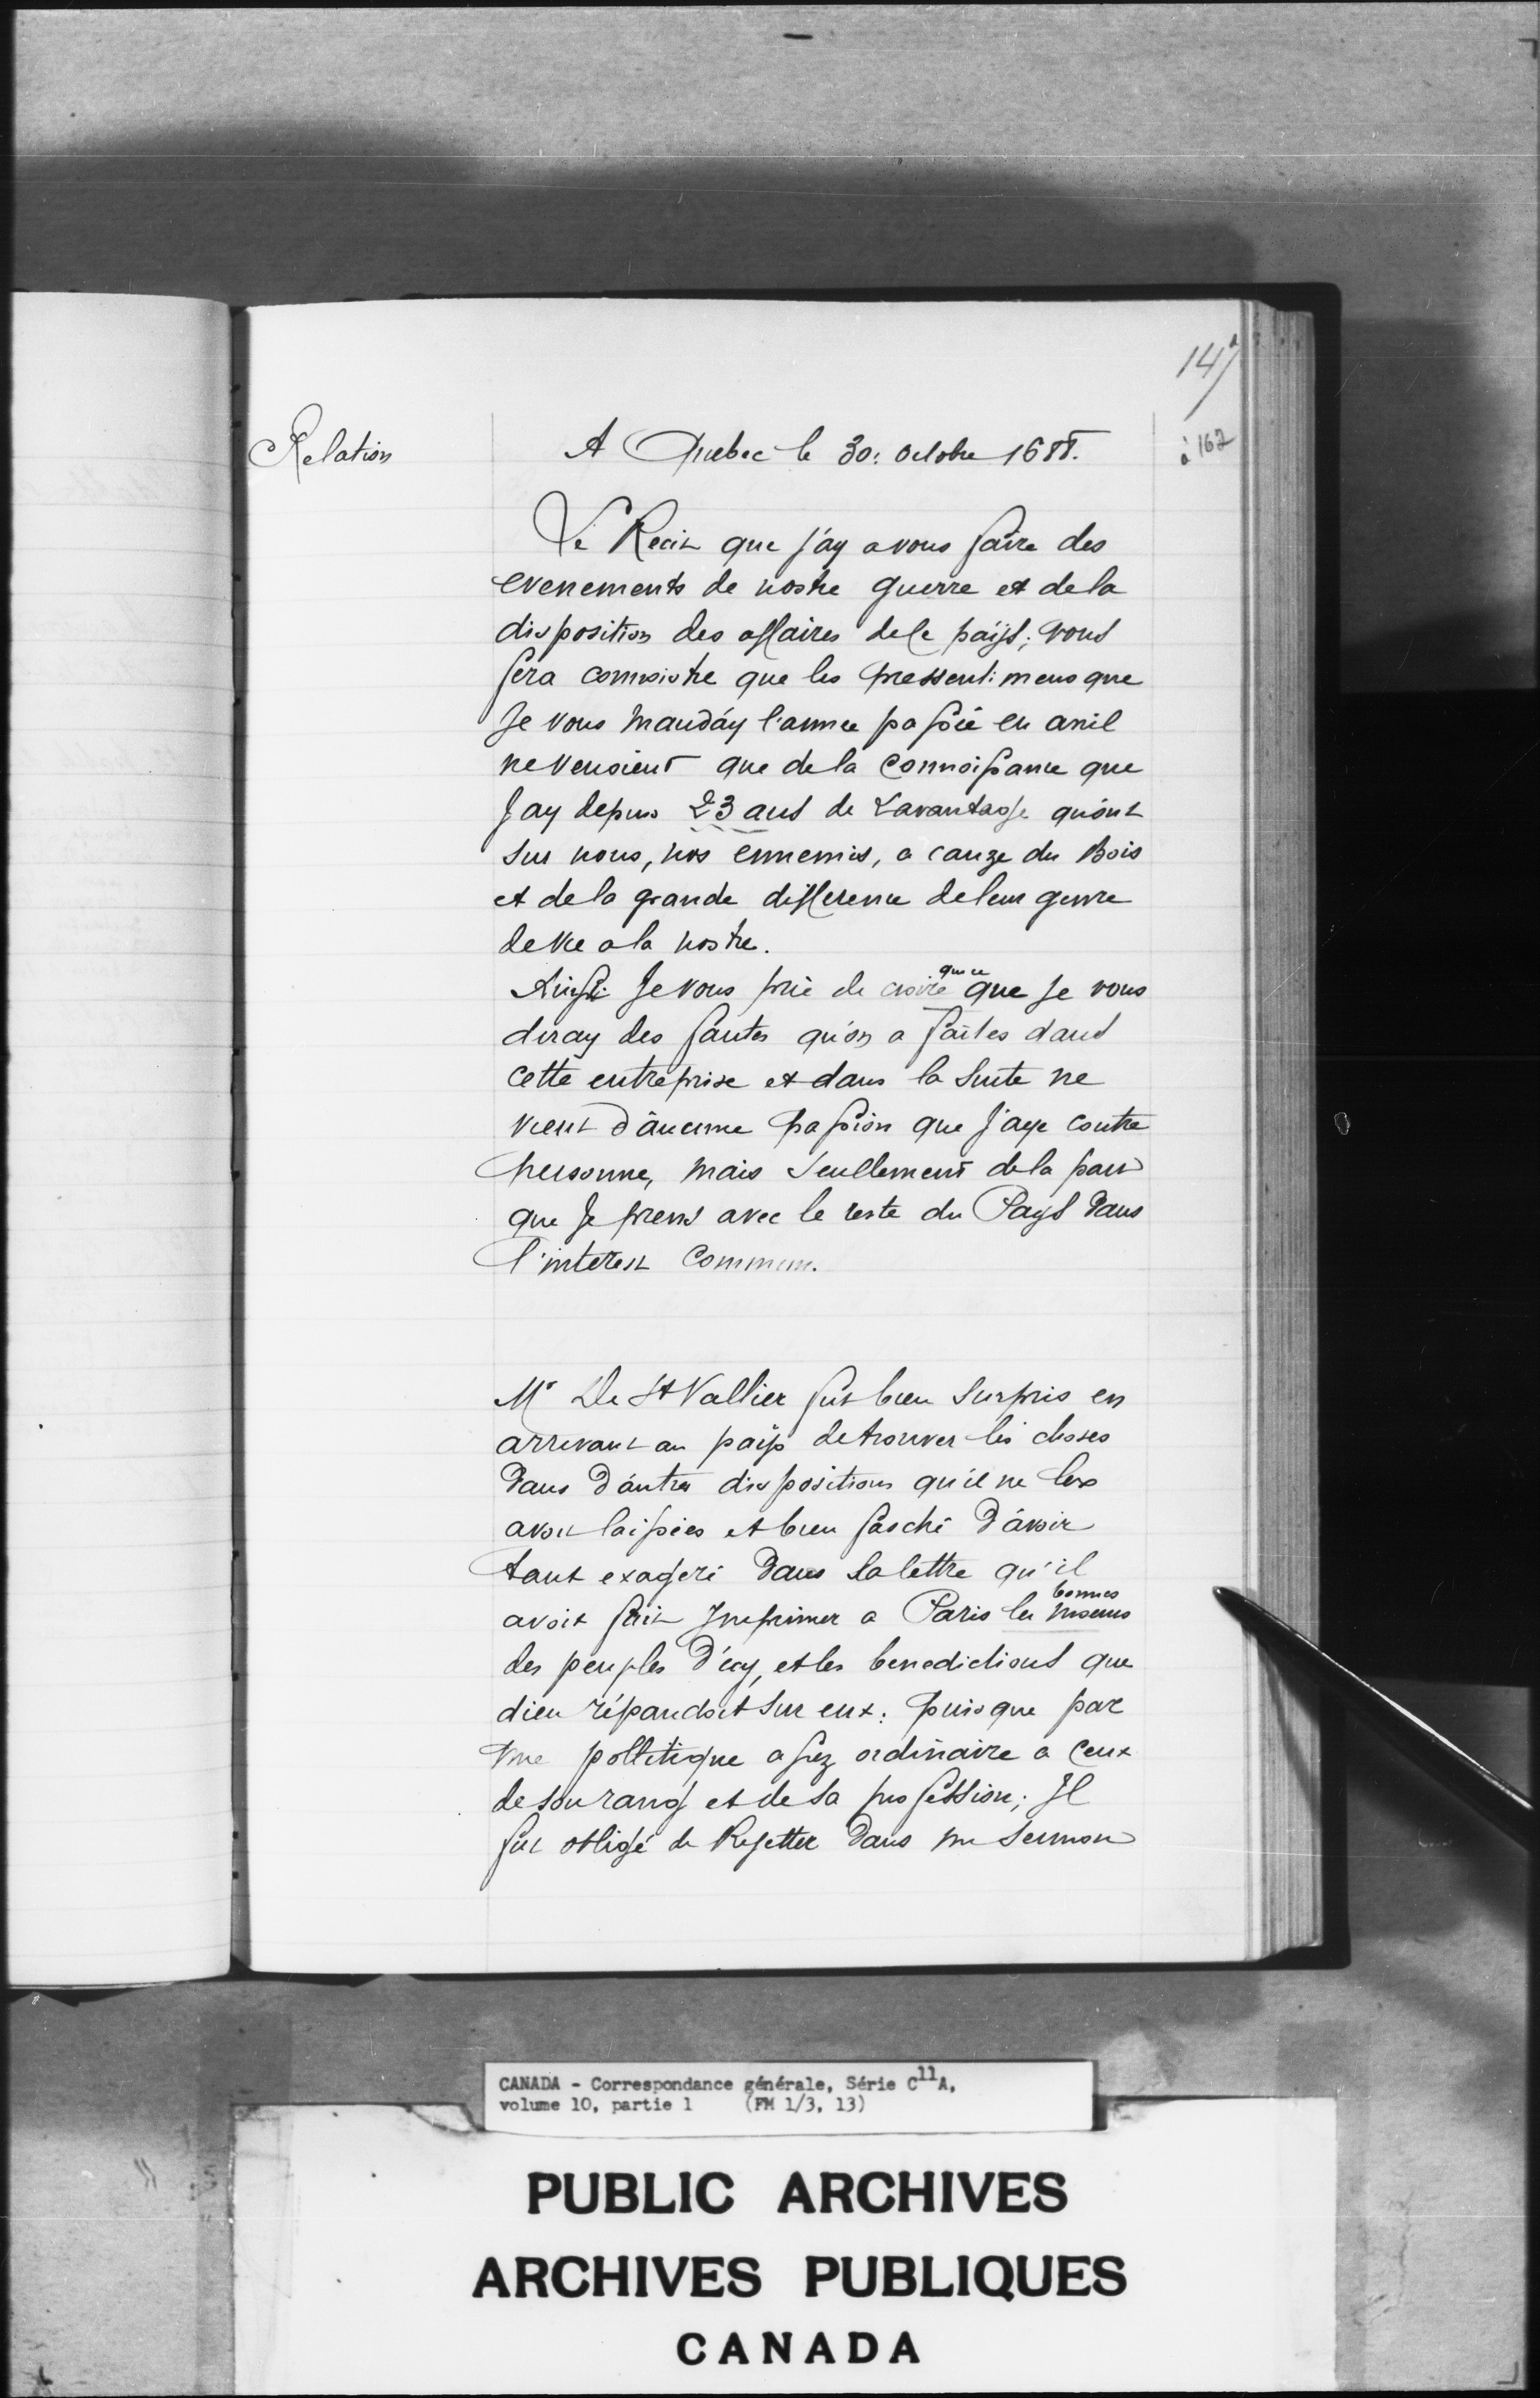 147
à 162
Relation
A Quebec le 30: Octobre 1688.
Le Recit que j'ay a vous faire des
evenements de nostre guerre et de la
disposition des affaires de ce païs; vous
fera connoistre que les pressentimens que
Je vous manday l'annee passée en avril
ne venoient que de la connoissance que
J'ay depuis 23 ans de L'avantage qu'ont
sur nous, nos ennemis, a cauze du Bois
et de la grande difference de leur genre
de vie a la nostre.
Ainssi Je vous prie de croire que ce que Je vous
diray des fautes qu'on a faites dans
cette entreprise et dans la suite ne
vient d'aucune passion que J'aye contre
personne, mais seullement de la part
que Je prens avec le reste du Pays dans
l'interest commun.
Mr De St Vallier fut bien surpris en
arrivant au païs de trouver les choses
dans d'autres dispositions qu'il ne les
avoit laissées et bien fasché d'avoir
tant exageré dans la lettre qu'il
avoit fait Imprimer a Paris les bonnes moeurs
des peuples d'icy, et les benedictions que
dieu répandoit sur eux: puisque par
une pollitique assez ordinaire a ceux
de son rang et de sa profession; Il
fut obligé de Rejetter dans un sermon
CANADA - Correspondance générale, Série C11A,
volume 10, partie 1 (FM 1/3, 13)
PUBLIC ARCHIVES
ARCHIVES PUBLIQUES
CANADA